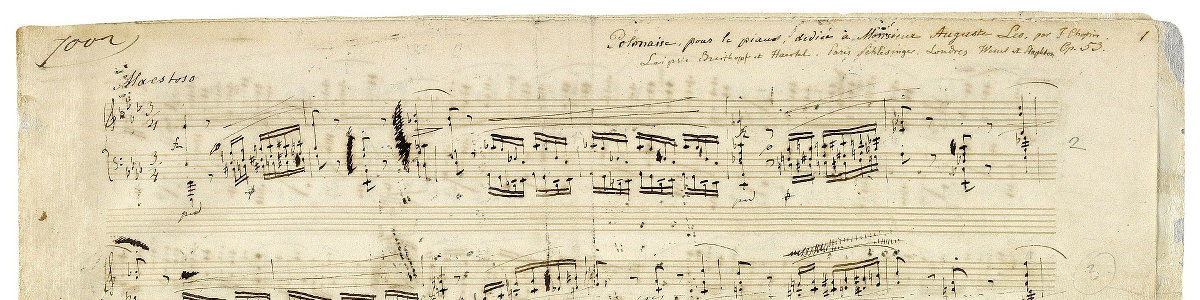 7002
Polonaise, pour le piano, dediée à Monsieur Auguste Leo, par F Chopin
1
Leipsic Breitkopf et Haertel. Paris Schlesinger. Londres Wessel et Stapleton Op. 53.
Maestoso
3
4
3
4
ped
ped
2
3